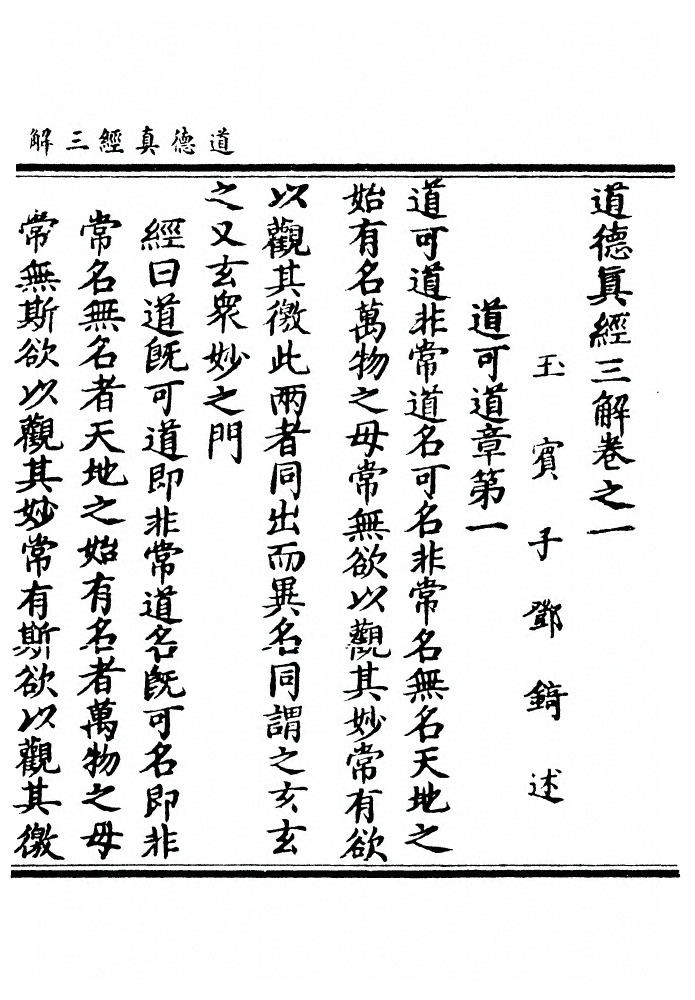 道德真經三解
道德眞經三解卷之一
玉賓子鄧錡述
道可道章第一
道可道非常道名可名非常名無名天地之
始有名萬物之母常無欲以觀其妙常有欲
以觀其徼此兩者同出而異名同謂之玄玄
之又玄衆妙之門
經曰道既可道即非常道名既可名即非
常名無名者天地之始有名者萬物之母
常無斯欲以觀其妙常有斯欲以觀其徼